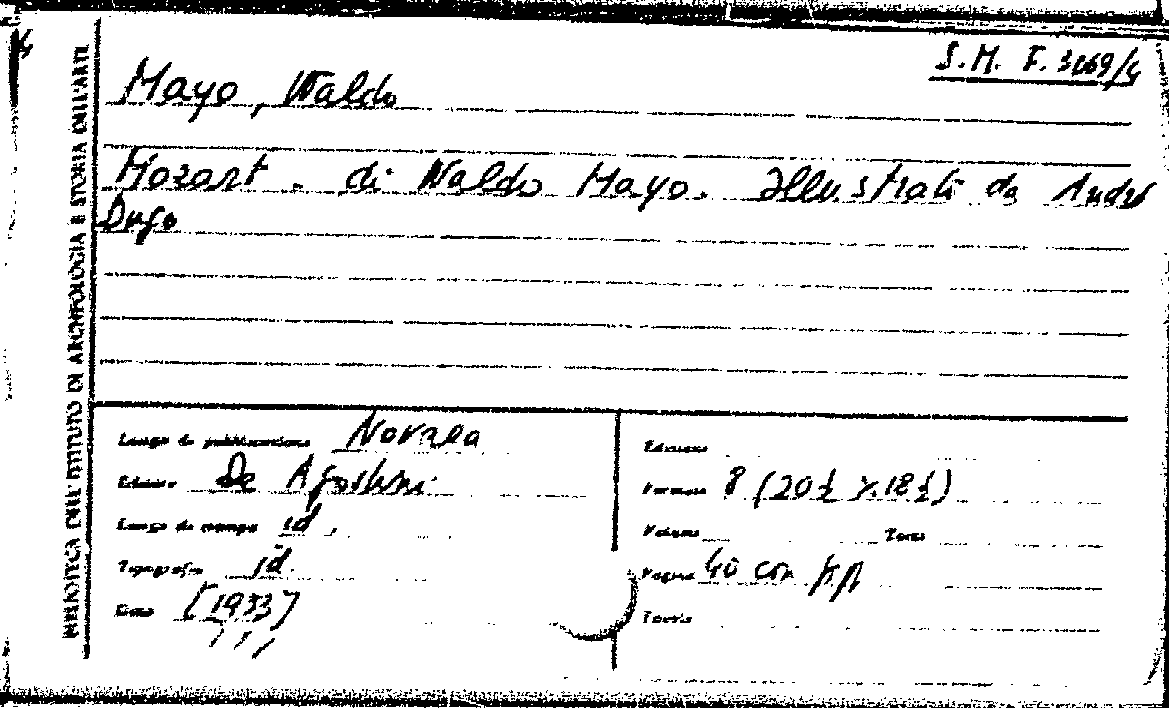 S. M. F. 3169/4
Mayo, Waldo
Mozart. di Waldo Mayo. Illustrati da Andre
Dugo
BIBLIOTECA DELL'ISTITUTO DI ARCHEOLOGIA E STORIA DELL'ARTE
Luogo di pubblicazione Novara
Editore De Agostini
Luogo di stampa id.
Tipografia id.
Data [1933]
Edizione
Formato 8 (20½ x 18½)
Volume Tomo
Pagine 40 con
Tavole